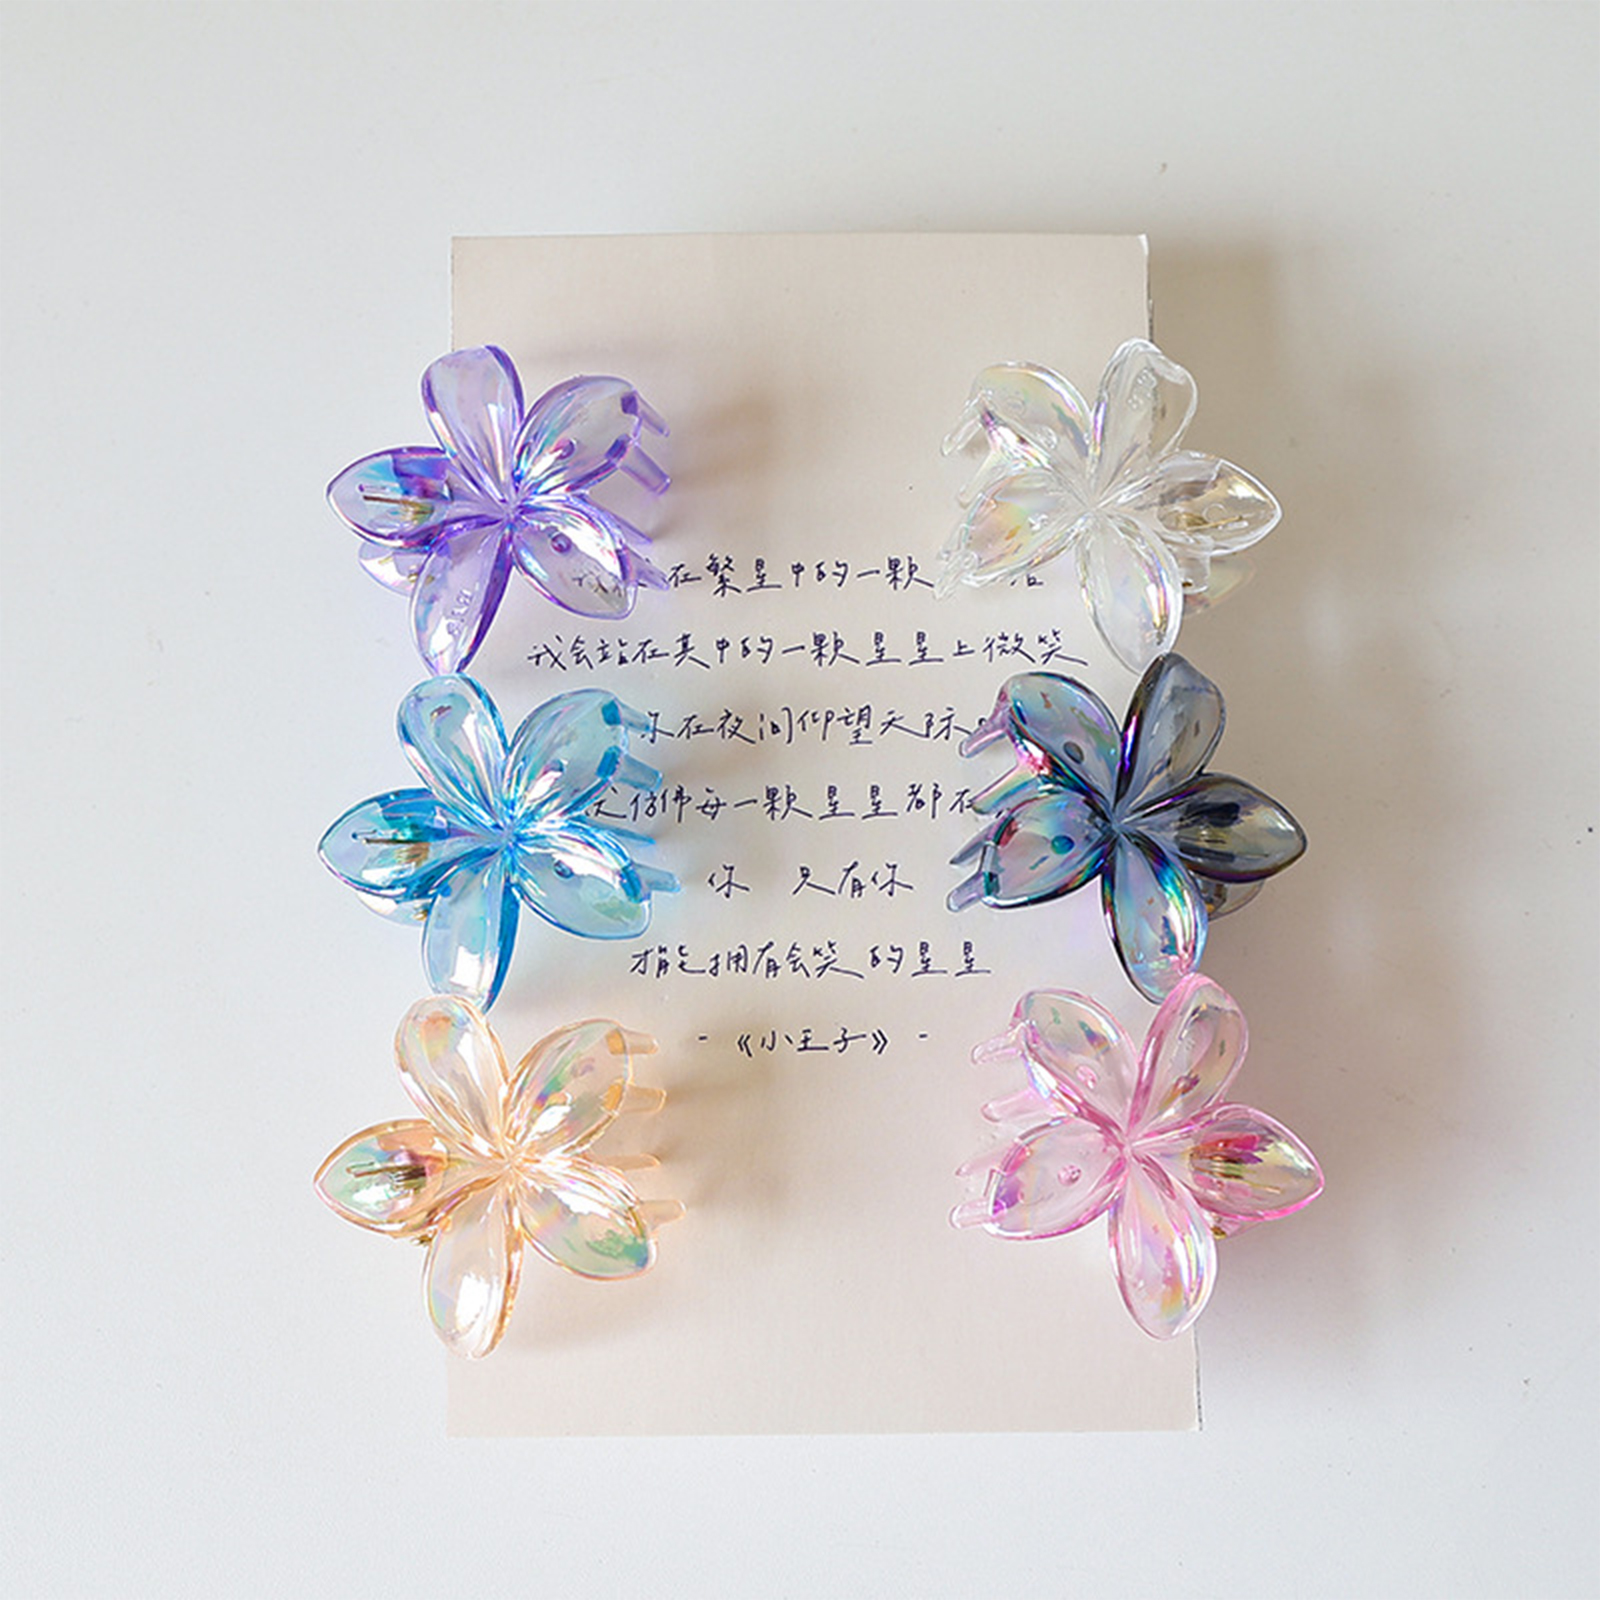 在繁星中的一颗
我会站在其中的一颗星星上微笑
你在夜间仰望天际
仿佛每一颗星星都在
你 只有你
才能拥有会笑的星星
- 《小王子》 -